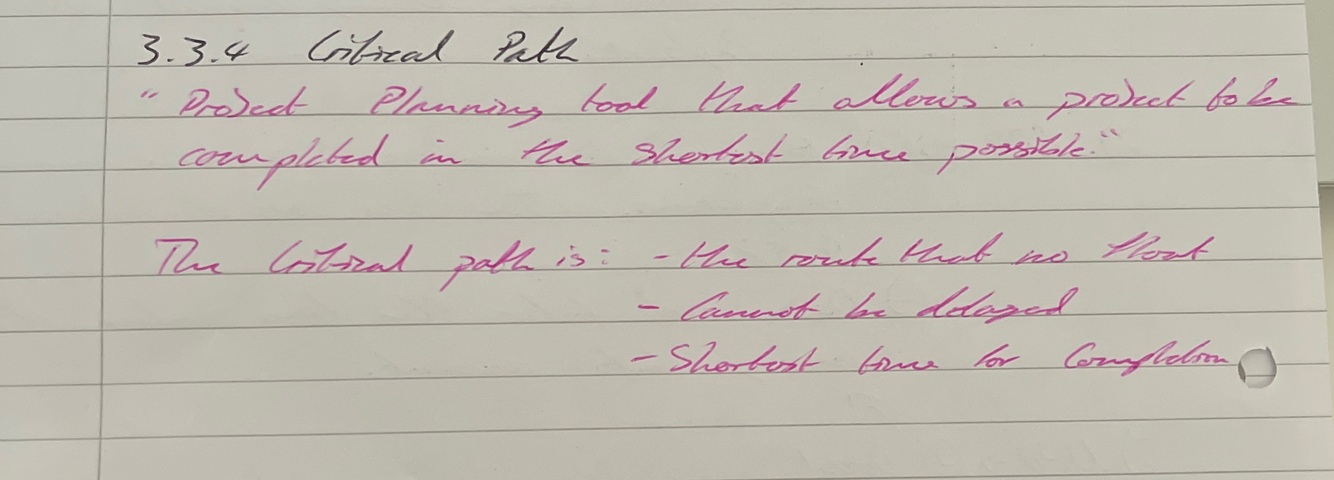 3.3.4 Critical Path
" Project Planning tool that allows a project to be
completed in the shortest time possible."
The Critical path is: - the route that no float
- Cannot be delayed
- Shortest time for Completion